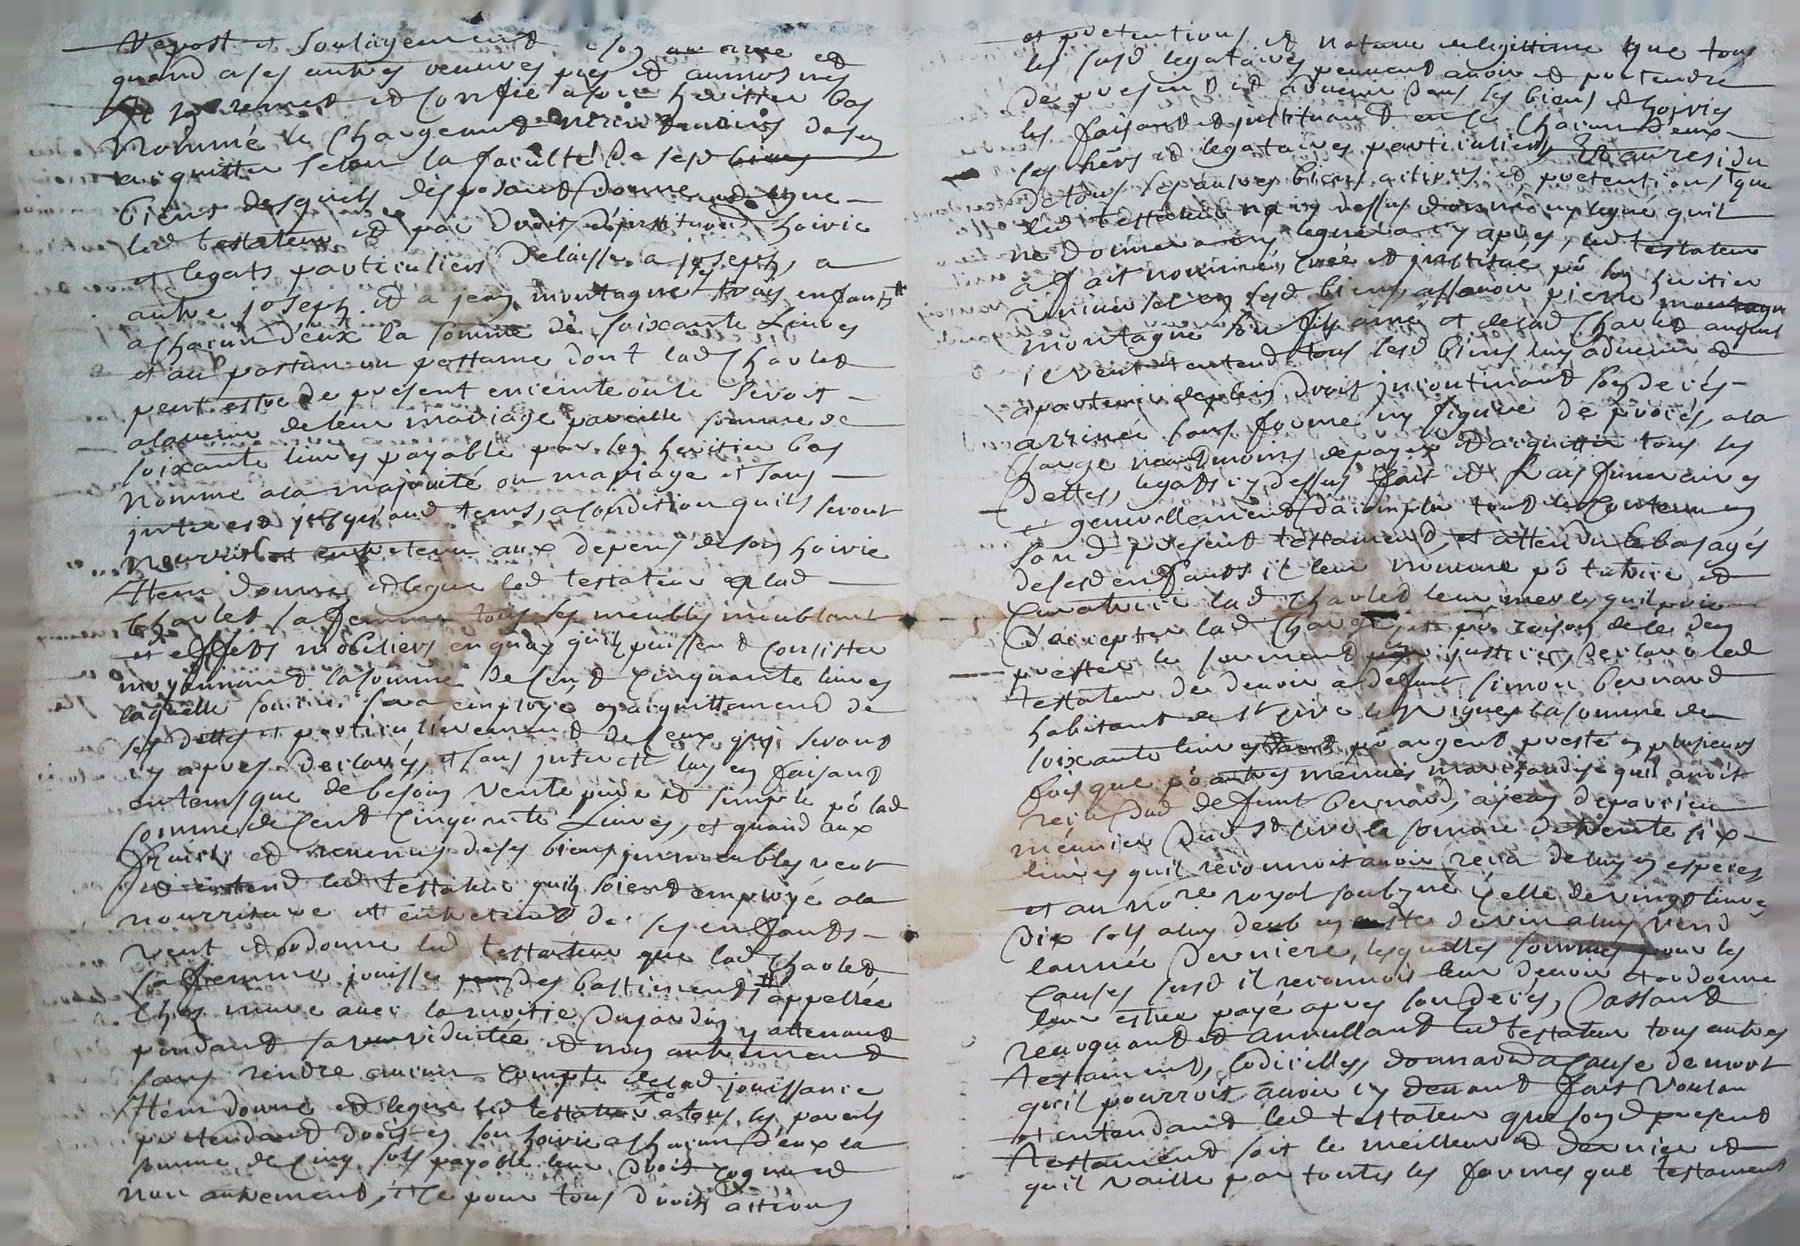 repost et soulagement de son ame et
quand a ses autres œuvres pies et aumosnes
remet et confie a son heritier bas
nommé le chargeant neanmoins de sen
acquitter selon la faculté de sesd biens
biens desquels disposant donne et legue
led testateur et par droit d'institution hoirie
et legats particuliers delaisse a joseph, a
autre joseph et a jean montagne trois enfants
a chacun d'eux la somme de soixante livres
et au postume dont lad Charles
peut estre de present enceinte ou le seroit
a lavenir de leur mariage pareille somme de
soixante livres payable par son heritier bas
nomme a la majorité ou mariage et sans
interest jusqu'aud tems, a condition quils seront
nourris et entretenu aux depens de son hoirie
Item donne et legue led testateur a lad
Charles sa femme tous ses meubles meublant
et effets mobiliers en quoy quil puissent consister
moyennant la somme de cent cinquante livres
laquelle somme sera employé en acquittement de
ses dettes et particulierement de ceux qui seront
cy apres declarés, et sans interest luy en faisant
en tems que de besoin vente pure et simple po lad
somme de cent cinquante livres, et quand aux
fruits et revenus de ses biens immeubles veut
et entend led testateur quils soient employé a la
nourriture et entretient de ses enfants
veut et ordonne led testateur que lad Charles
sa femme jouisse des bastiments appellée
chez mure avec la moitie du jardin y attenant
pendant sa viduitée et non autrement
sans rendre aucun compte de lad jouissance
Item donne et legue led testateur a tous ses parents
pretendant droit en son hoirie a chacun d'eux la
somme de cinq sols payable leur droit cognu et
non autrement, et ce pour tous droits actions
et pretentions et nature de legittime que tous
les susd legataires peuvent avoir et pretendre
de present et a venir dans ses biens et hoirie
les faisant et instituant en ce chacun d'eux
ses hers et legataires particuliers, Et au residu
de tous ses autres biens actions et pretentions que
led testateur na cy dessus donné ny legué quil
ne donnera ny leguera cy apres, led testateur
a fait nommé, créé et institue po son heritier
universel en sesd biens, assavoir pierre
montagne son fils ainé et de lad Charles auquel
il veut et entend tous lesd biens luy advenir et
apartenir de plein droit incontinant son decés
arrivée sans forme ny figure de procés, a la
charge neanmoins de payer et acquitter tous les
dettes, legats cy dessus fait et frais funeraires
et generallement d'accomplir tout le contenu en
sond present testament, et attendu le bas agés
de sesd enfants il leur nomme po tutrice et
curatrice lad Charles leur mere, quil prie
d'accepter lad charge et po raison de ce den
prester le serment en justice, declare led
testateur de devoir a defunt simon bernard
habitant de st cire la somme de
soixante livres po argent presté en plusieurs
fois que po autres menües marchandise quil avoit
reçu dud defunt bernard, a jean
meunier dud st cire la somme de trente six
livres quil reconnoit avoir reçu de luy en especes
et au nore royal soubzné celle de vingt livres
dix sols a luy deub en reste de vin a luy vend
lannée derniere, lesquelles sommes pour les
causes susd il reconnoit leur devoir et ordonne
leur estre payé apres son decés, Cassant
revoquant et annullant led testateur tous autres
testaments, codicilles, donnation a cause de mort
quil pourroit avoir cy devant fait voulan
et entendant led testateur que sond present
testament soit le meilleur et dernier et
quil vaille par toutes les formes que testament